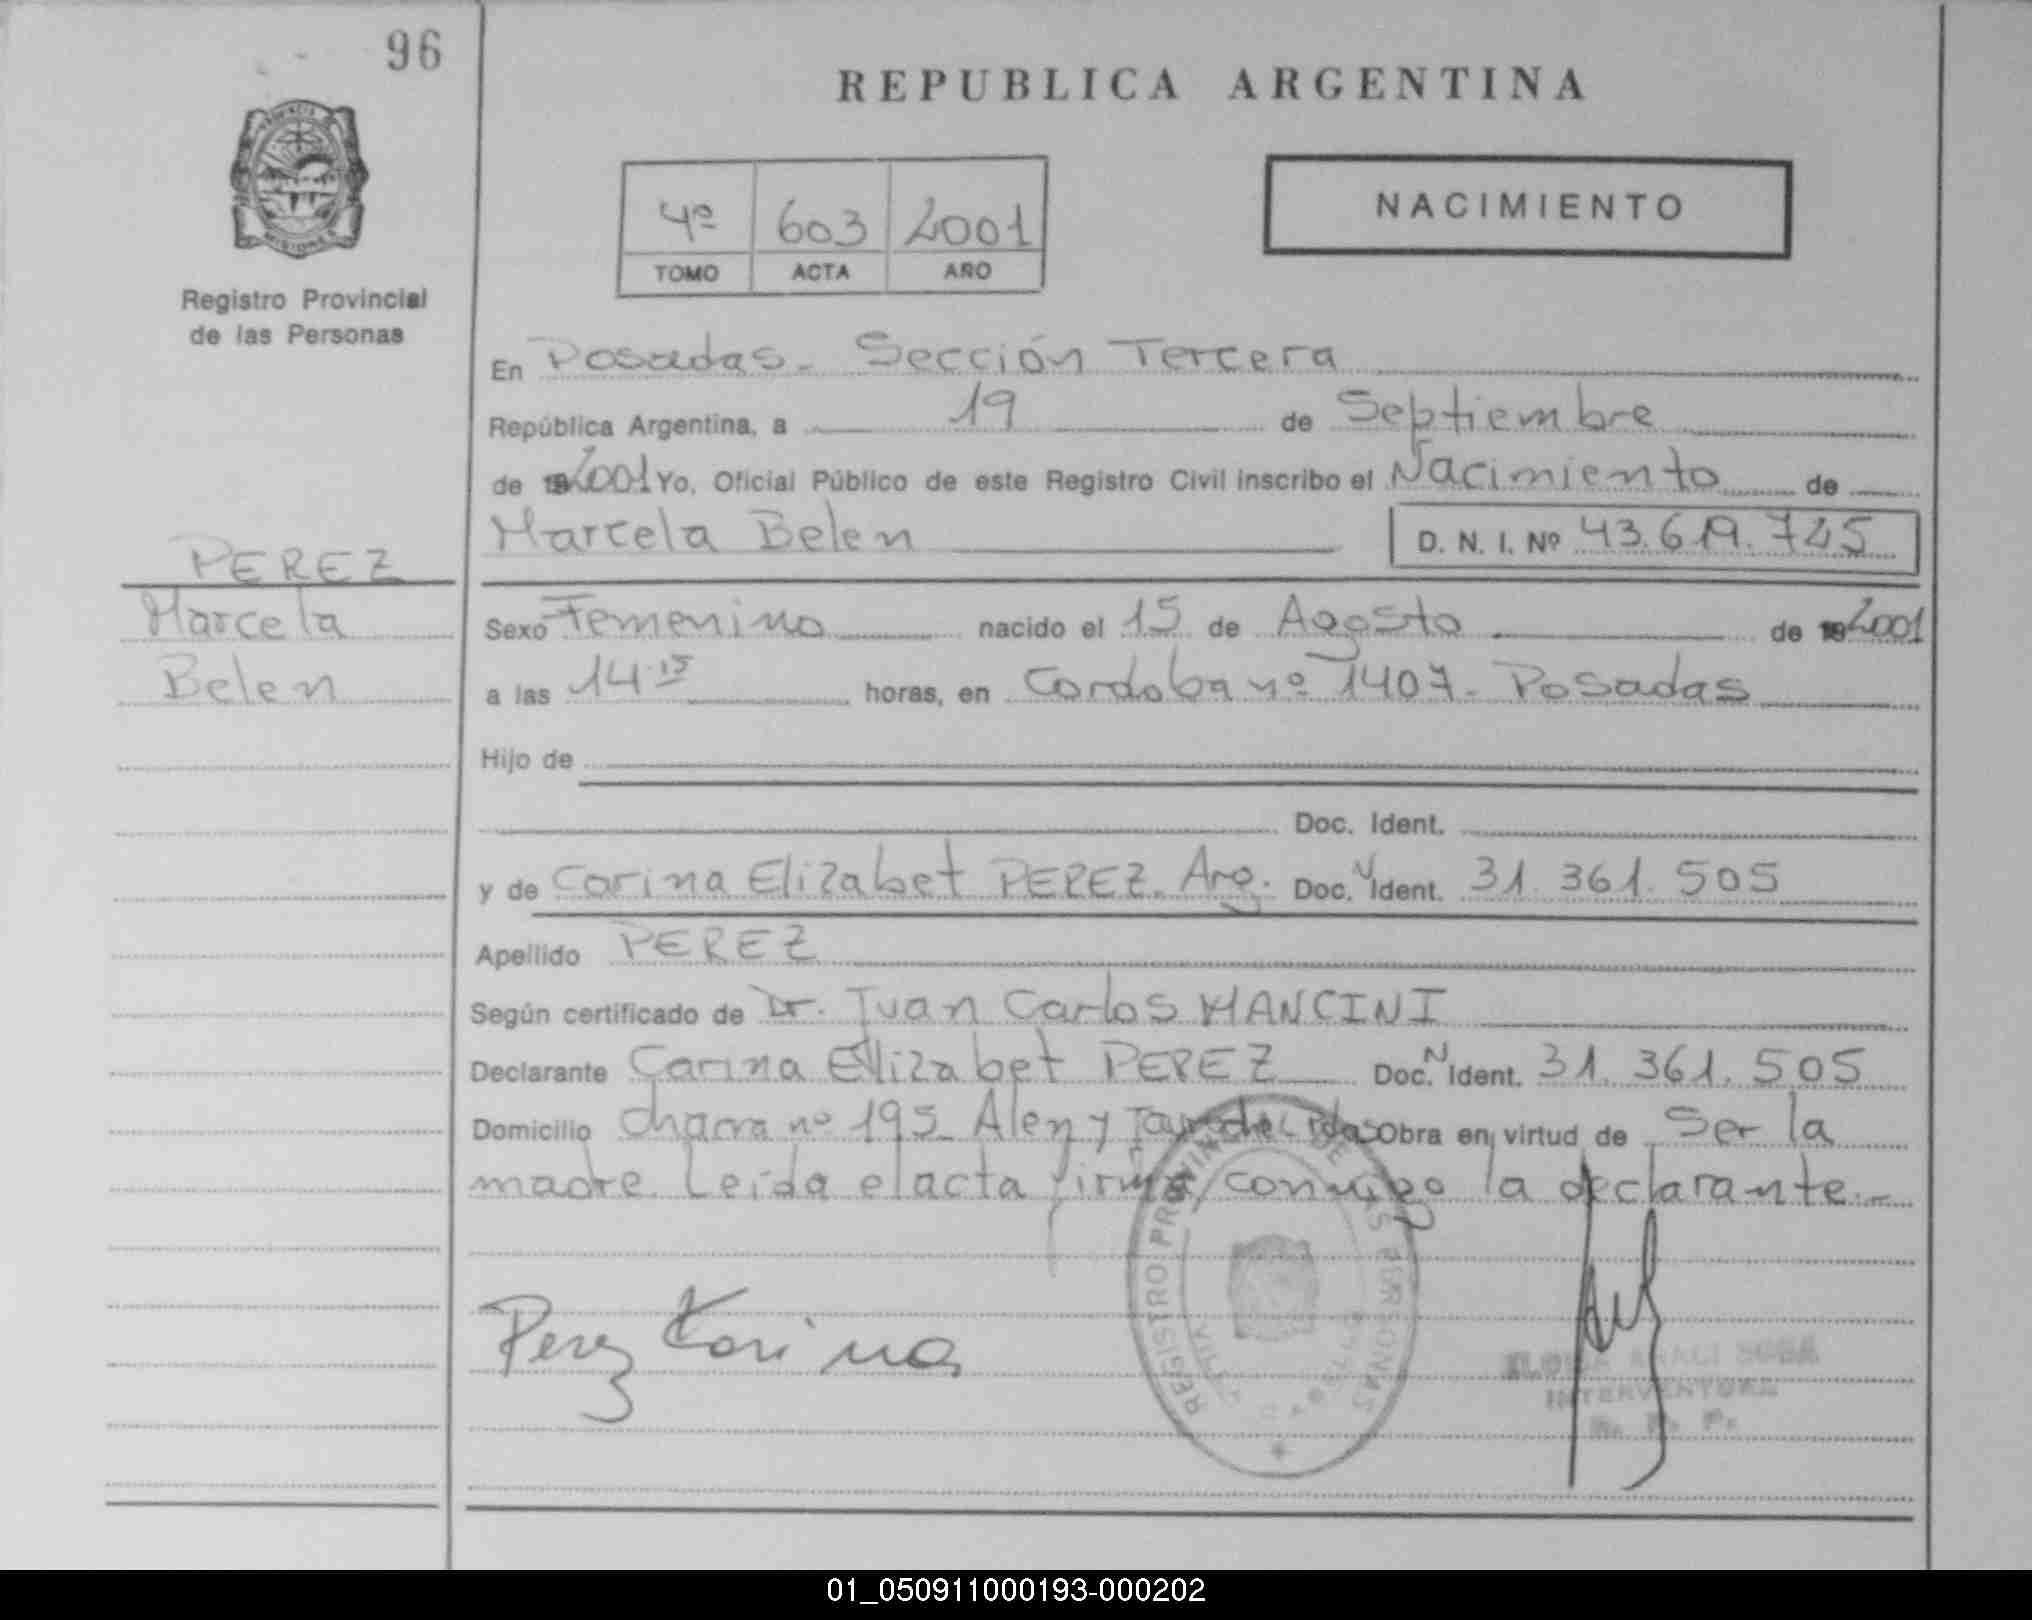 96
PROVINCIA DE
MISIONES
Registro Provincial
de las Personas
REPUBLICA ARGENTINA
NACIMIENTO
4º 603 2001
TOMO ACTA AÑO
En Posadas - Sección Tercera
República Argentina, a 19 de Septiembre
de 19 2001 Yo, Oficial Público de este Registro Civil inscribo el Nacimiento de
Marcela Belen D. N. I. Nº 43.619.725
PEREZ
Marcela
Belen
Sexo Femenino nacido el 15 de Agosto de 19 2001
a las 14.15 horas, en Cordoba nº 1407 - Posadas
Hijo de
Doc. Ident.
y de Carina Elizabet PEREZ. Arg. Doc. N Ident. 31.361.505
Apellido PEREZ
Según certificado de Dr. Juan Carlos MANCINI
Declarante Carina Elizabet PEREZ Doc. N Ident. 31.361.505
Domicilio chacra nº 195 Alen y Obra en virtud de Ser la
madre. Leída el acta firma conmigo la declarante.-
Perez Karina
REGISTRO PROVINCIAL DE LAS PERSONAS
ANALI SOSA
INTERVENTORA
R. P. P.
01_050911000193-000202